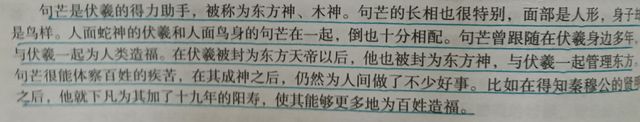 句芒是伏羲的得力助手，被称为东方神、木神。句芒的长相也很特别，面部是人形，身子
是鸟样。人面蛇神的伏羲和人面鸟身的句芒在一起，倒也十分相配。句芒曾跟随在伏羲身边多年，
与伏羲一起为人类造福。在伏羲被封为东方天帝以后，他也被封为东方神，与伏羲一起管理东方。
句芒很能体察百姓的疾苦，在其成神之后，仍然为人间做了不少好事。比如在得知秦穆公的贤明
之后，他就下凡为其加了十九年的阳寿，使其能够更多地为百姓造福。